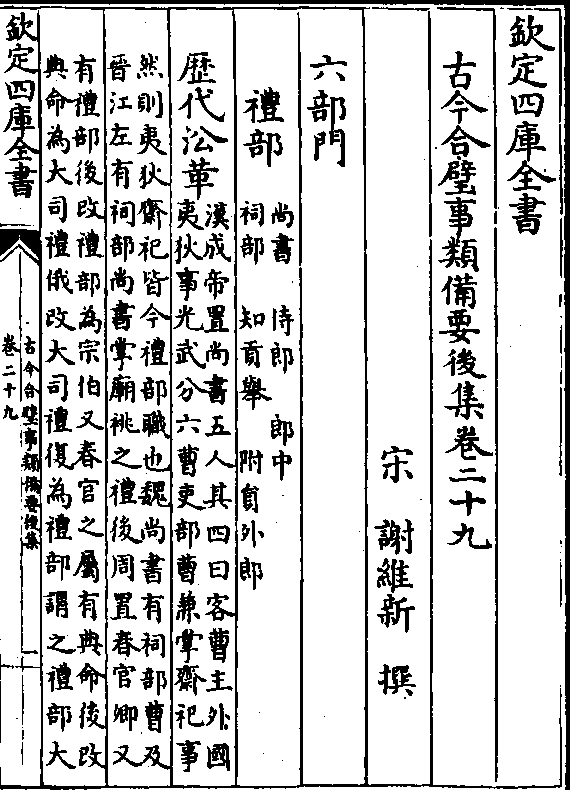 欽定四庫全書
古今合璧事類備要後集卷二十九
宋 謝維新 撰
六部門
禮部
尚書 侍郎 郎中
祠部 知貢舉 附員外郎
歷代㳂革
漢成帝置尚書五人其四曰客曹主外國
夷狄事光武分六曹吏部曹兼掌齋祀事
然則夷狄齋祀皆今禮部職也魏尚書有祠部曹及
晉江左有祠部尚書掌廟祧之禮後周置春官卿又
有禮部後改禮部為宗伯又春官之屬有典命後改
典命為大司禮俄改大司禮復為禮部謂之禮部大
欽定四庫全書
古今合璧事類備要後集
卷二十九
一